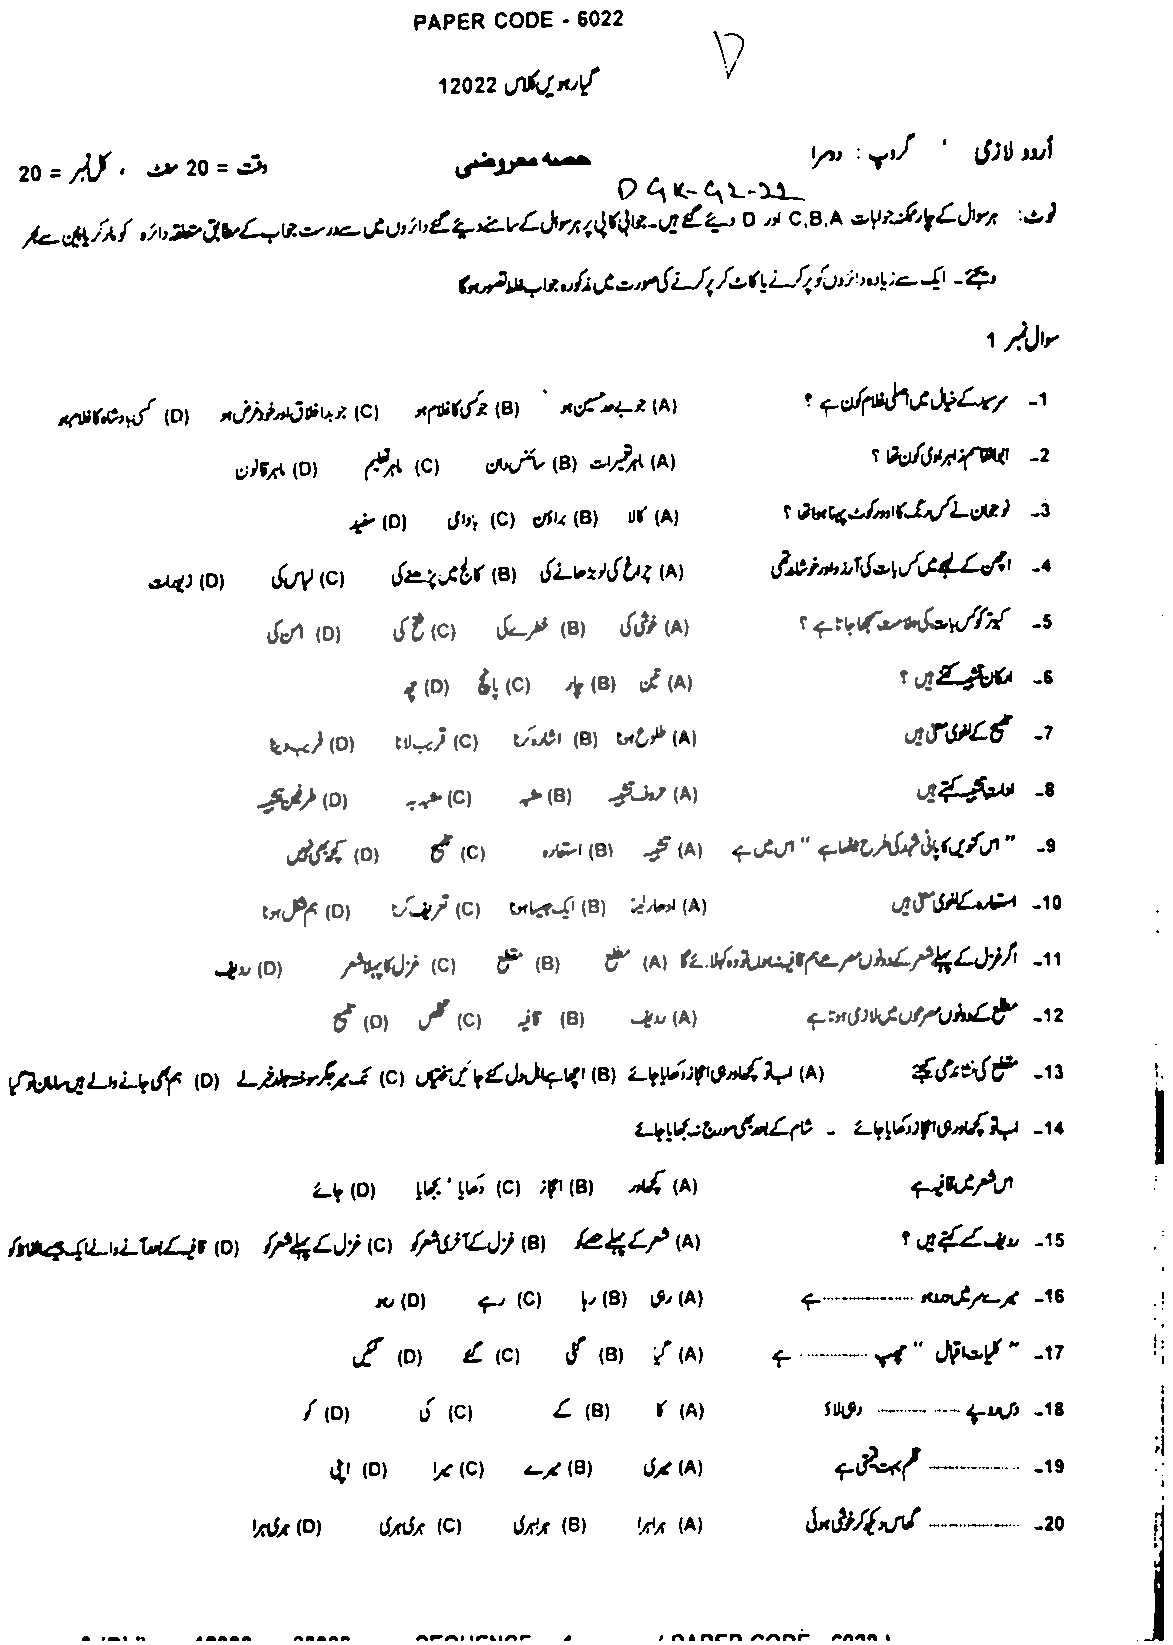 PAPER CODE - 6022
گیارھویں کلاس 12022
اُردو لازمی ' گروپ : دوسرا
حصہ معروضی
وقت = 20 منٹ ، کل نمبر = 20
DGK-G2-22
نوٹ: ہر سوال کے چار ممکنہ جوابات C,B,A اور D دیئے گئے ہیں۔ جوابی کاپی پر ہر سوال کے سامنے دیئے گئے دائروں میں سے درست جواب کے مطابق متعلقہ دائرہ کو مارکر یا پین سے بھر
دیجئے۔ ایک سے زیادہ دائروں کو پر کرنے یا کاٹ کر پر کرنے کی صورت میں مذکورہ جواب غلط تصور ہوگا
سوال نمبر 1
1- سرسید کے خیال میں اصلی غلام کون ہے ؟ (A) جو بے حد حسین ہو (B) جو کسی کا غلام ہو (C) جو بد اخلاق اور خود غرض ہو (D) کسی بادشاہ کا غلام ہو
2- ابوالقاسم زہراوی کون تھا ؟ (A) ماہر تعمیرات (B) سائنس دان (C) ماہر تعلیم (D) ماہر قانون
3- نوجوان نے کس رنگ کا اوورکوٹ پہنا ہوا تھا ؟ (A) کالا (B) براؤن (C) بادامی (D) سفید
4- اچھن کے لہجے میں کس بات کی آرزو اور خوشامد تھی (A) چراغ کی لو بڑھانے کی (B) کالج میں پڑھنے کی (C) لباس کی (D) زیورات
5- کبوتر کو کس بات کی علامت سمجھا جاتا ہے ؟ (A) خوشی کی (B) خطرے کی (C) فتح کی (D) امن کی
6- ارکان تشبیہ کتنے ہیں ؟ (A) تین (B) چار (C) پانچ (D) چھ
7- تلمیح کے لغوی معنی ہیں (A) طلوع ہونا (B) اشارہ کرنا (C) قریب لانا (D) فریب دینا
8- ادات تشبیہ کہتے ہیں (A) حروف تشبیہ (B) مشبہ (C) مشبہ بہ (D) طرفین تشبیہ
9- " اس کنویں کا پانی شہد کی طرح میٹھا ہے " اس میں ہے (A) تشبیہ (B) استعارہ (C) تلمیح (D) کچھ بھی نہیں
10- استعارہ کے لغوی معنی ہیں (A) ادھار لینا (B) ایک جیسا ہونا (C) تعریف کرنا (D) ہم شکل ہونا
11- اگر غزل کے پہلے شعر کے دونوں مصرعے ہم قافیہ ہوں تو وہ کہلائے گا (A) مطلع (B) مقطع (C) غزل کا پہلا شعر (D) ردیف
12- مطلع کے دونوں مصرعوں میں لازمی ہوتا ہے (A) ردیف (B) قافیہ (C) تخلص (D) تلمیح
13- مقطع کی نشاندہی کیجئے (A) اب تو کچھ اور ہی اعجاز دکھایا جائے (B) اچھا ہے اہل دل کئے جائیں سختیاں (C) تک میر جگر سوختہ جلد خبر لے (D) ہم بھی جانے والے ہیں سامان تو گیا
14- اب تو کچھ اور ہی اعجاز دکھایا جائے - شام کے بعد بھی سورج نہ بجھایا جائے
اس شعر میں قافیہ ہے (A) کچھ اور (B) اعجاز (C) دکھایا ' بجھایا (D) جائے
15- ردیف کسے کہتے ہیں ؟ (A) شعر کے پہلے حصے کو (B) غزل کے آخری شعر کو (C) غزل کے پہلے شعر کو (D) قافیہ کے بعد آنے والے ایک جیسے الفاظ کو
16- میرے سر میں درد ہو ............ ہے (A) رہی (B) رہا (C) رہے (D) رہو
17- " کلیات اقبال " چھپ ............ ہے (A) گیا (B) گئی (C) گئے (D) گئیں
18- دس روپے ............ دہی لاؤ (A) کا (B) کے (C) کی (D) کو
19- ............ قلم بہت قیمتی ہے (A) میری (B) میرے (C) میرا (D) اپنی
20- ............ گھاس دیکھ کر خوشی ہوئی (A) ہرا ہرا (B) ہرا ہری (C) ہری ہری (D) ہری ہرا